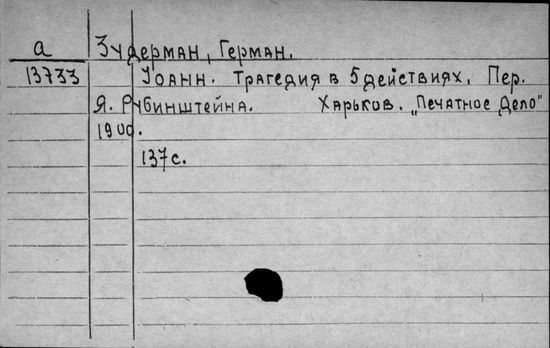 а Зудерман, Герман.
13733 Иоанн. Трагедия в 5 действиях, Пер.
Я. Рубинштейна. Харьков. „Печатное Дело"
1900.
137 с.